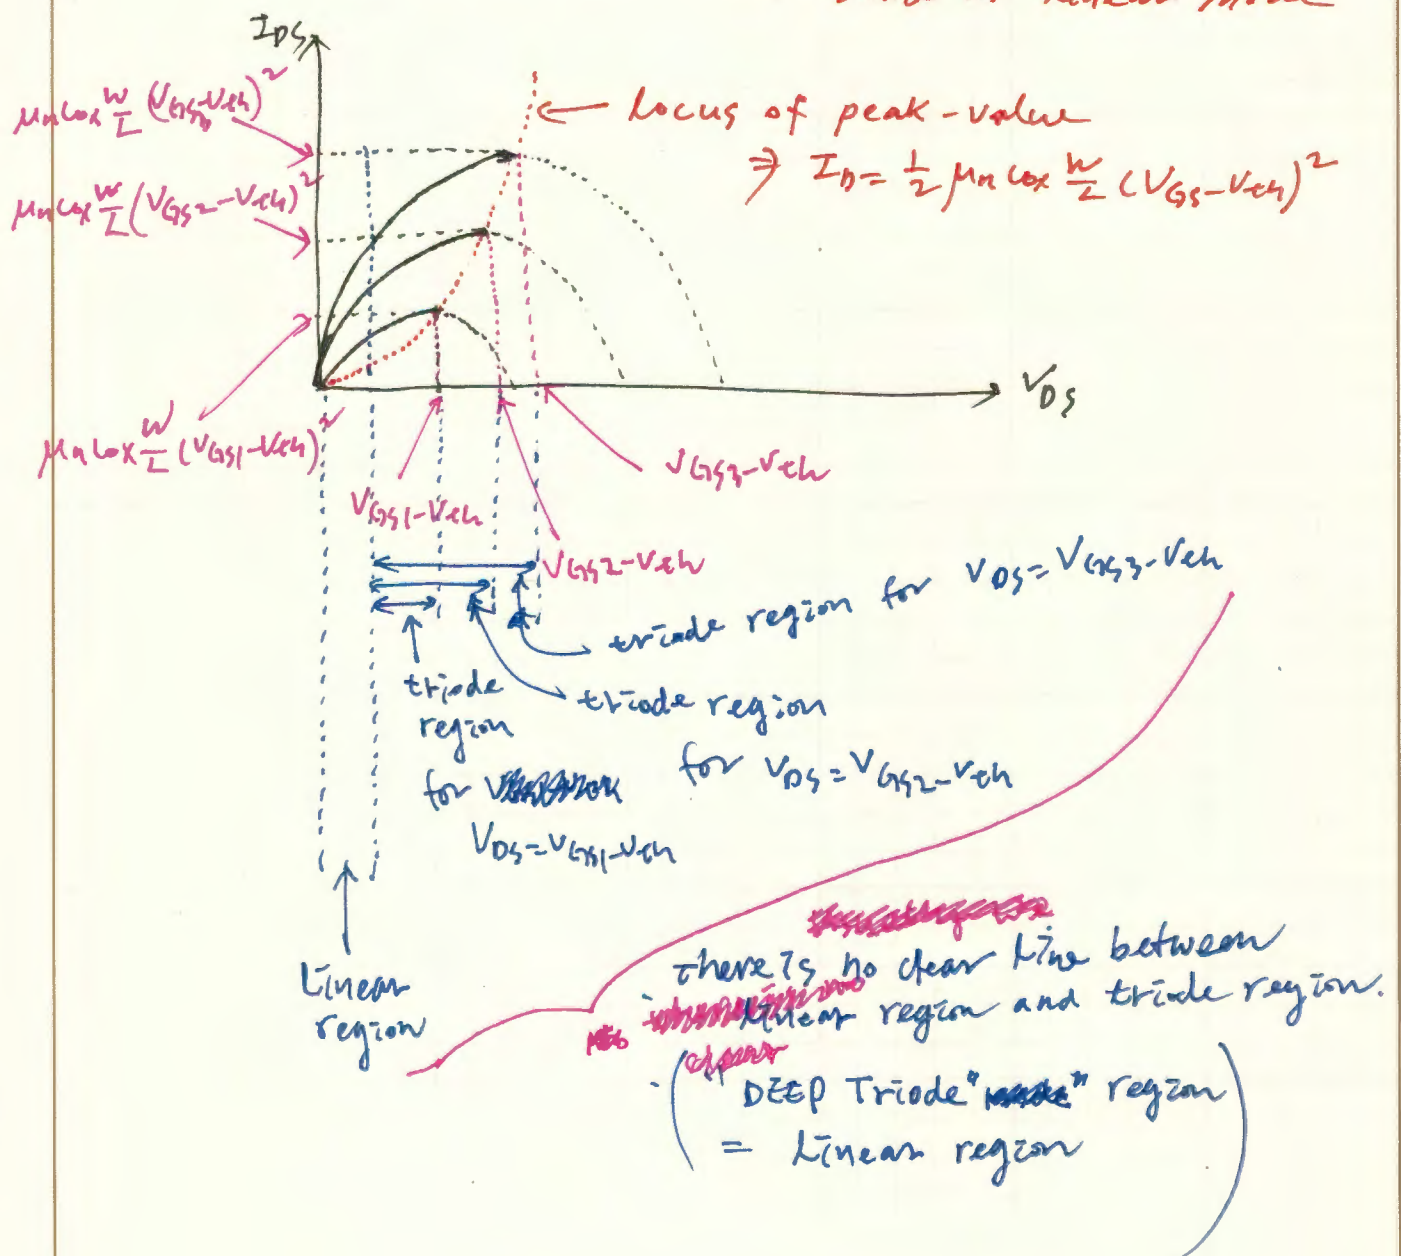 I_DS
μn Cox W/L (VGS3-Vth)^2
← locus of peak-value
⇒ ID = 1/2 μn Cox W/L (VGS-Vth)^2
μn Cox W/L (VGS2-Vth)^2
VDS
μn Cox W/L (VGS1-Vth)^2
VGS3-Vth
VGS1-Vth
VGS2-Vth
triode region for VDS=VGS3-Vth
triode region
for VDS=VGS2-Vth
triode
region
for
VDS=VGS1-Vth
Linear
region
there is no clear line between
linear region and triode region.
("DEEP Triode" region
= Linear region)